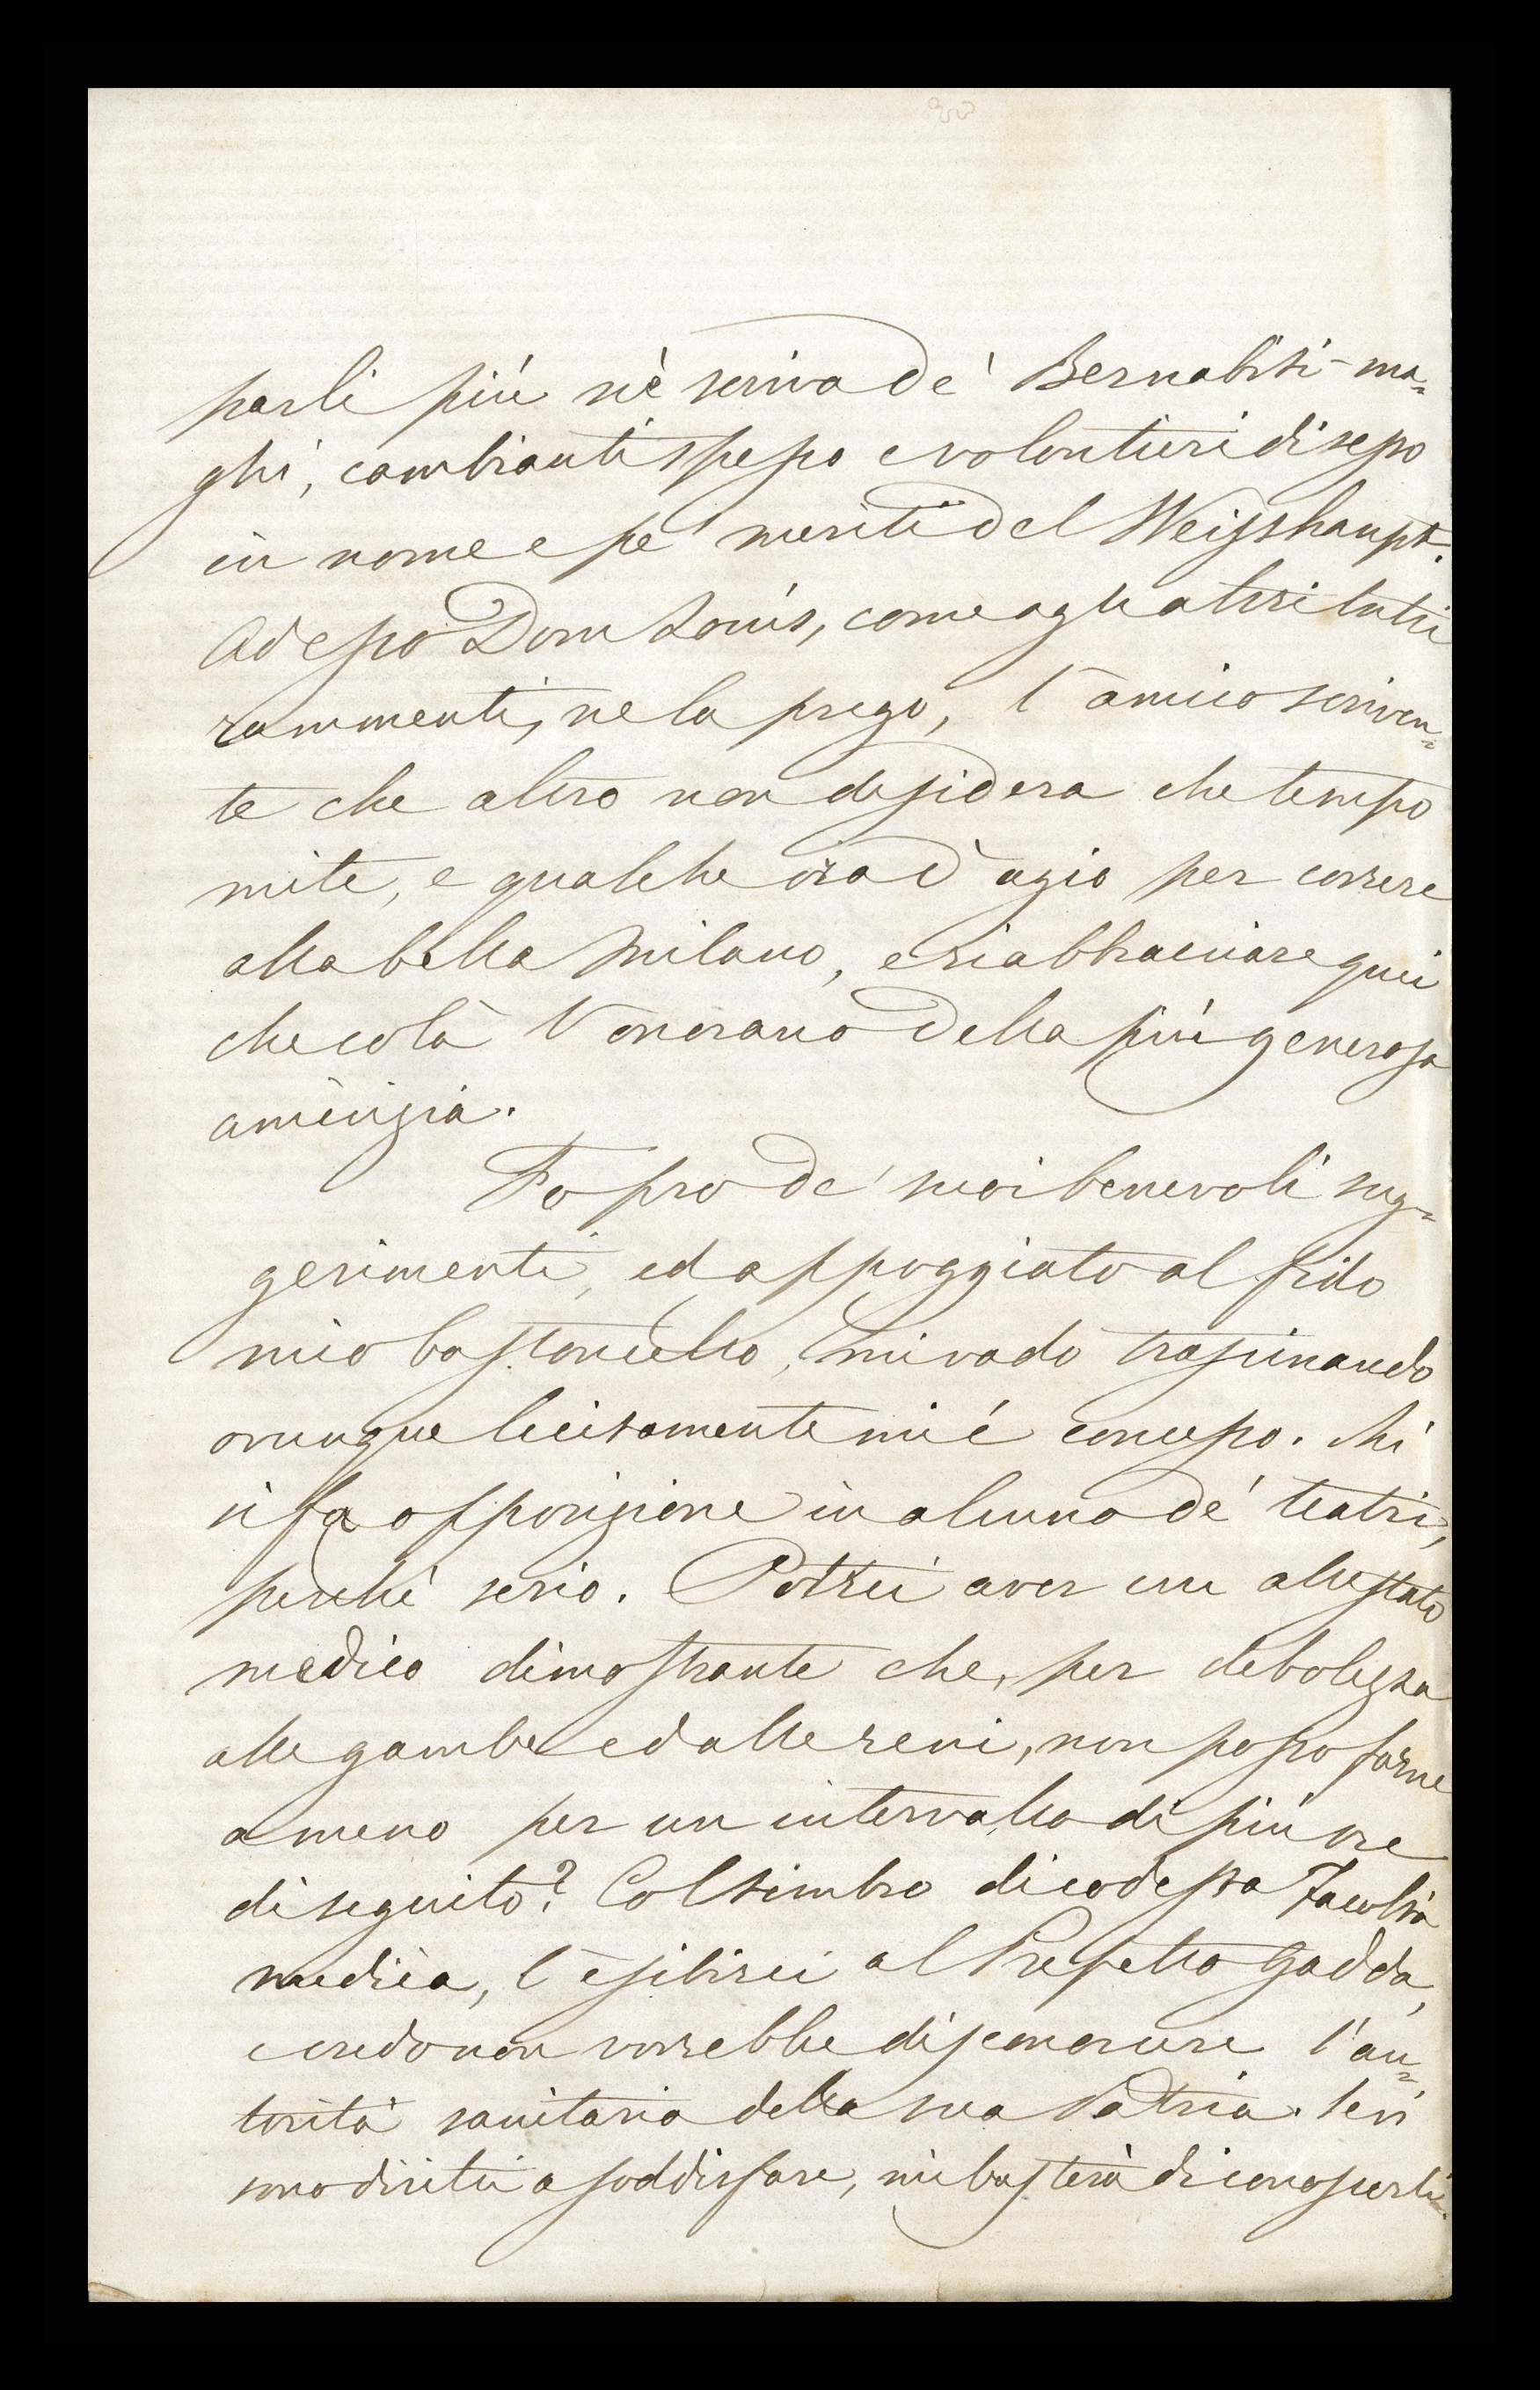 parli più nè scriva de' Bernabiti-ma-
ghi, cambianti spesso e volontieri di sesso
in nome e pe' meriti del Weisshaupt.
Ad esso Dom Louis, come agli altri tutti
rammenti, ne la prego, l'amico scriven-
te che altro non desidera che tempo
mite, e qualche ora d'agio per correre
alla bella Milano, e riabbracciare quei
che colà l'onorano della più generosa
amicizia.
Fo pro de' suoi benevoli sug-
gerimenti, ed appoggiato al fido
mio bastoncello, mi vado trascinando
ovunque lecitamente mi è concesso. Mi
si fa opposizione in alcuno de' teatri,
perchè serio. Potrei aver un attestato
medico dimostrante che, per debolezza
alle gambe ed alle reni, non posso farne
a meno per un intervallo di più ore
di seguito? Col timbro di codessa Facoltà
medica, l'esibirei al Prefetto Gadda,
e credo non vorrebbe disconoscere l'au-
torità sanitaria della sua Patria. Se vi
sono diritti a soddisfare, mi basterà di conoscerli.